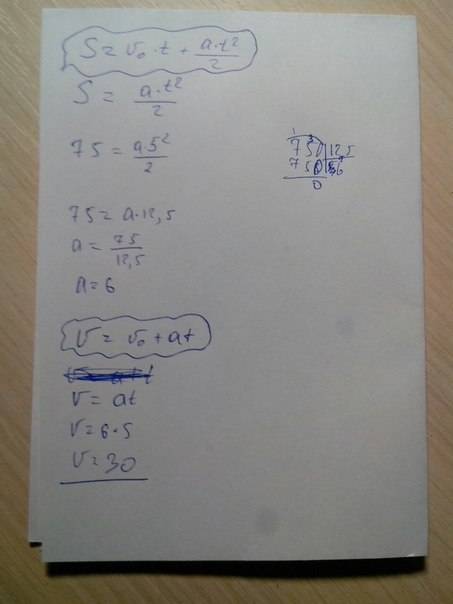 S = v₀ · t + a·t²/2
S = a·t²/2
75 = a·5²/2
75 = a·12,5
a = 75/12,5
a = 6
v = v₀ + at
v = at
v = 6·5
v = 30
750 | 125
750 | 6
0